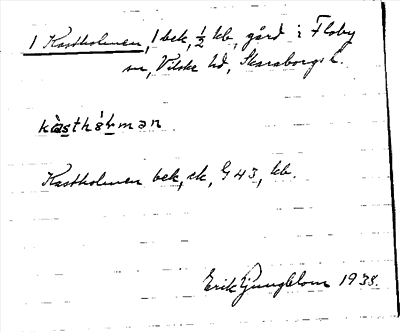 1 Kastholmen, 1 bek, ½ kb, gård i Floby
sn, Vilske hd, Skaraborgs l.
kàsthólman
Kastholmen bek, ek, G 43, kb.
Erik Ljungblom 1938.